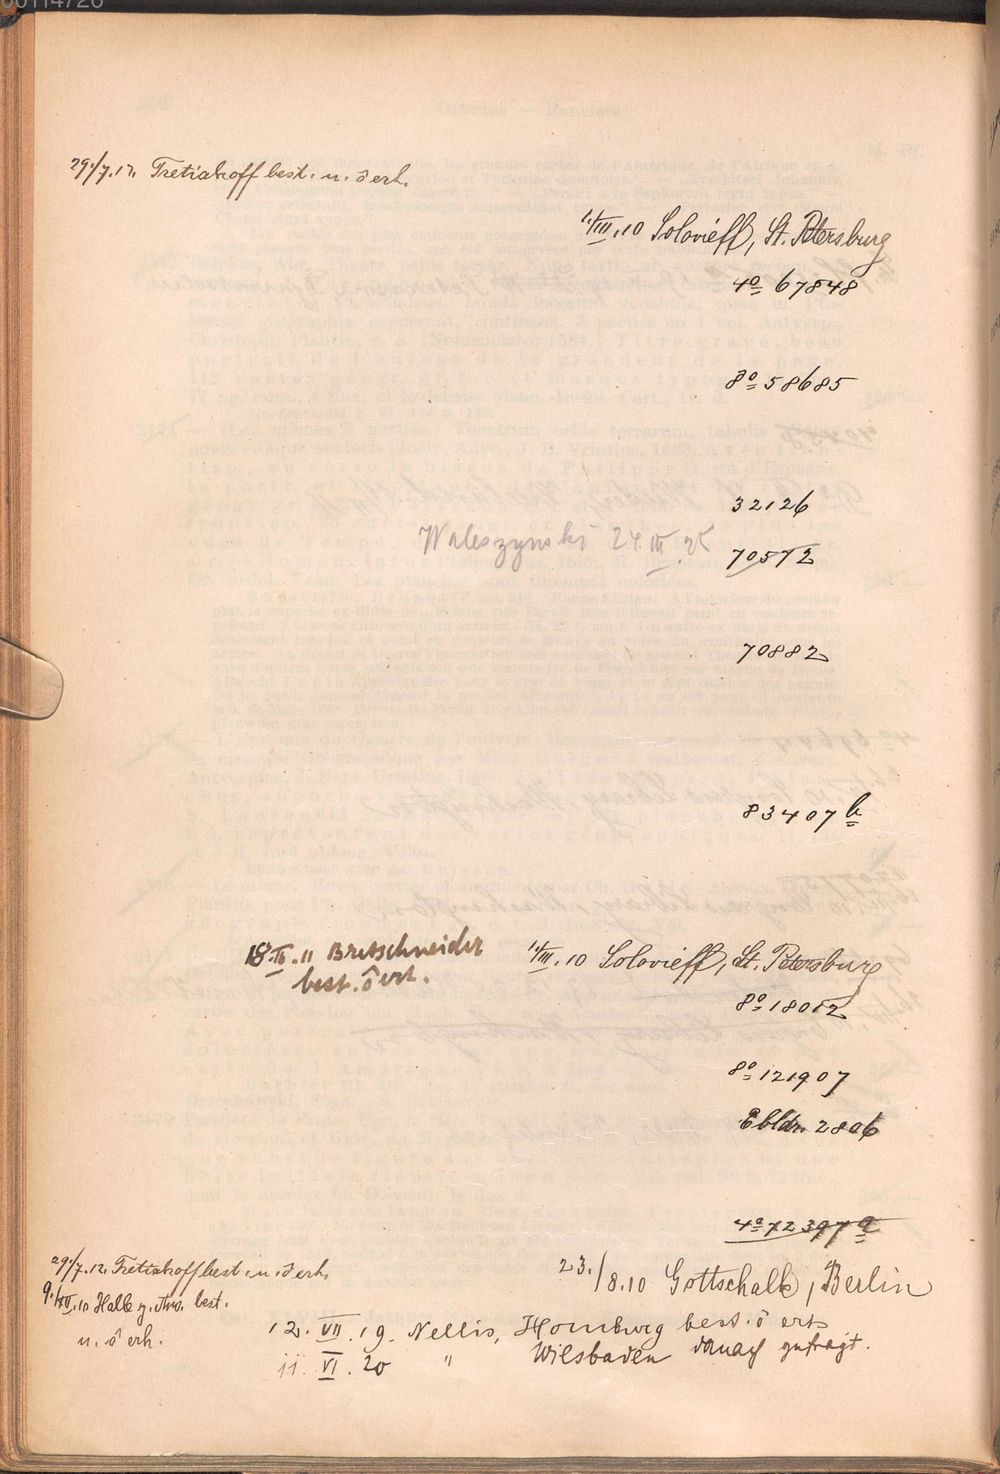 00114726
29./7.12. Tretiakoff best. u. ö erh.
1./III.10 Solovieff, St. Petersburg
4º 67848
8º 58685
32126
Waleszynski 24.III.25
70572
70882
83407 b
18.II.11 Bretschneider
best. ö erh.
1./III.10 Solovieff, St. Petersburg
8º 18012
8º 121907
Ebldr. 2806
4º 72397 a
29./7.12. Tretiakoff best. u. ö erh.
23./8.10 Gottschalk, Berlin
best.
u. ö erh.
12. VII. 19. Nellis, Homburg best. ö erh
11. VI. 20 " Wiesbaden danach gefragt.